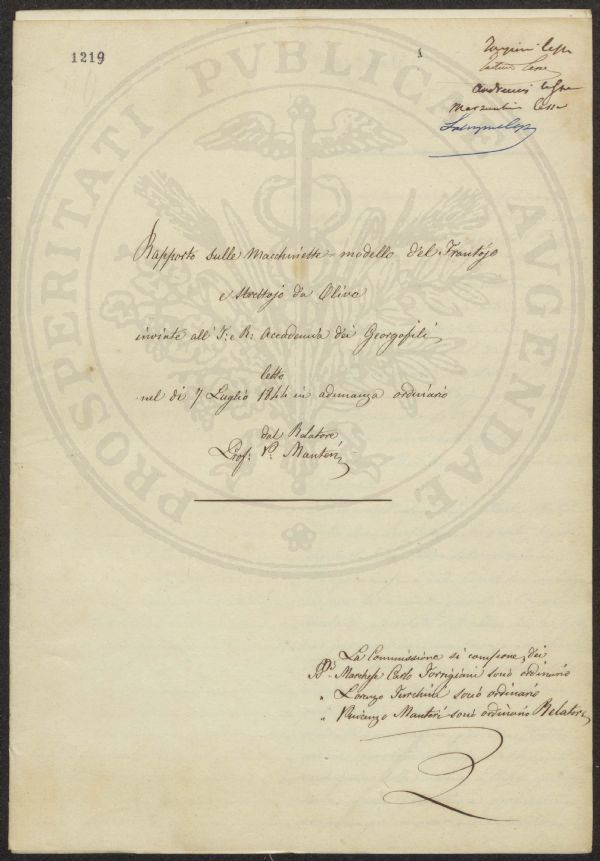 1219
Torrigiani lesse
lesse
Andreucci lesse
lesse
PROSPERITATI PUBLICAE AUGENDAE
Rapporto sulle Macchinette-modello del Frantojo
e Strettojo da Olive
inviate all' I: e R: Accademia dei Georgofili
letto
nel dì 7 Luglio 1844 in adunanza ordinaria
dal Relatore
Prof: V: Manteri
La Commissione si compone, dei
SS:ri Marchese Carlo Torrigiani socio ordinario
„ Lorenzo Turchini socio ordinario
„ Vincenzo Manteri socio ordinario Relatore